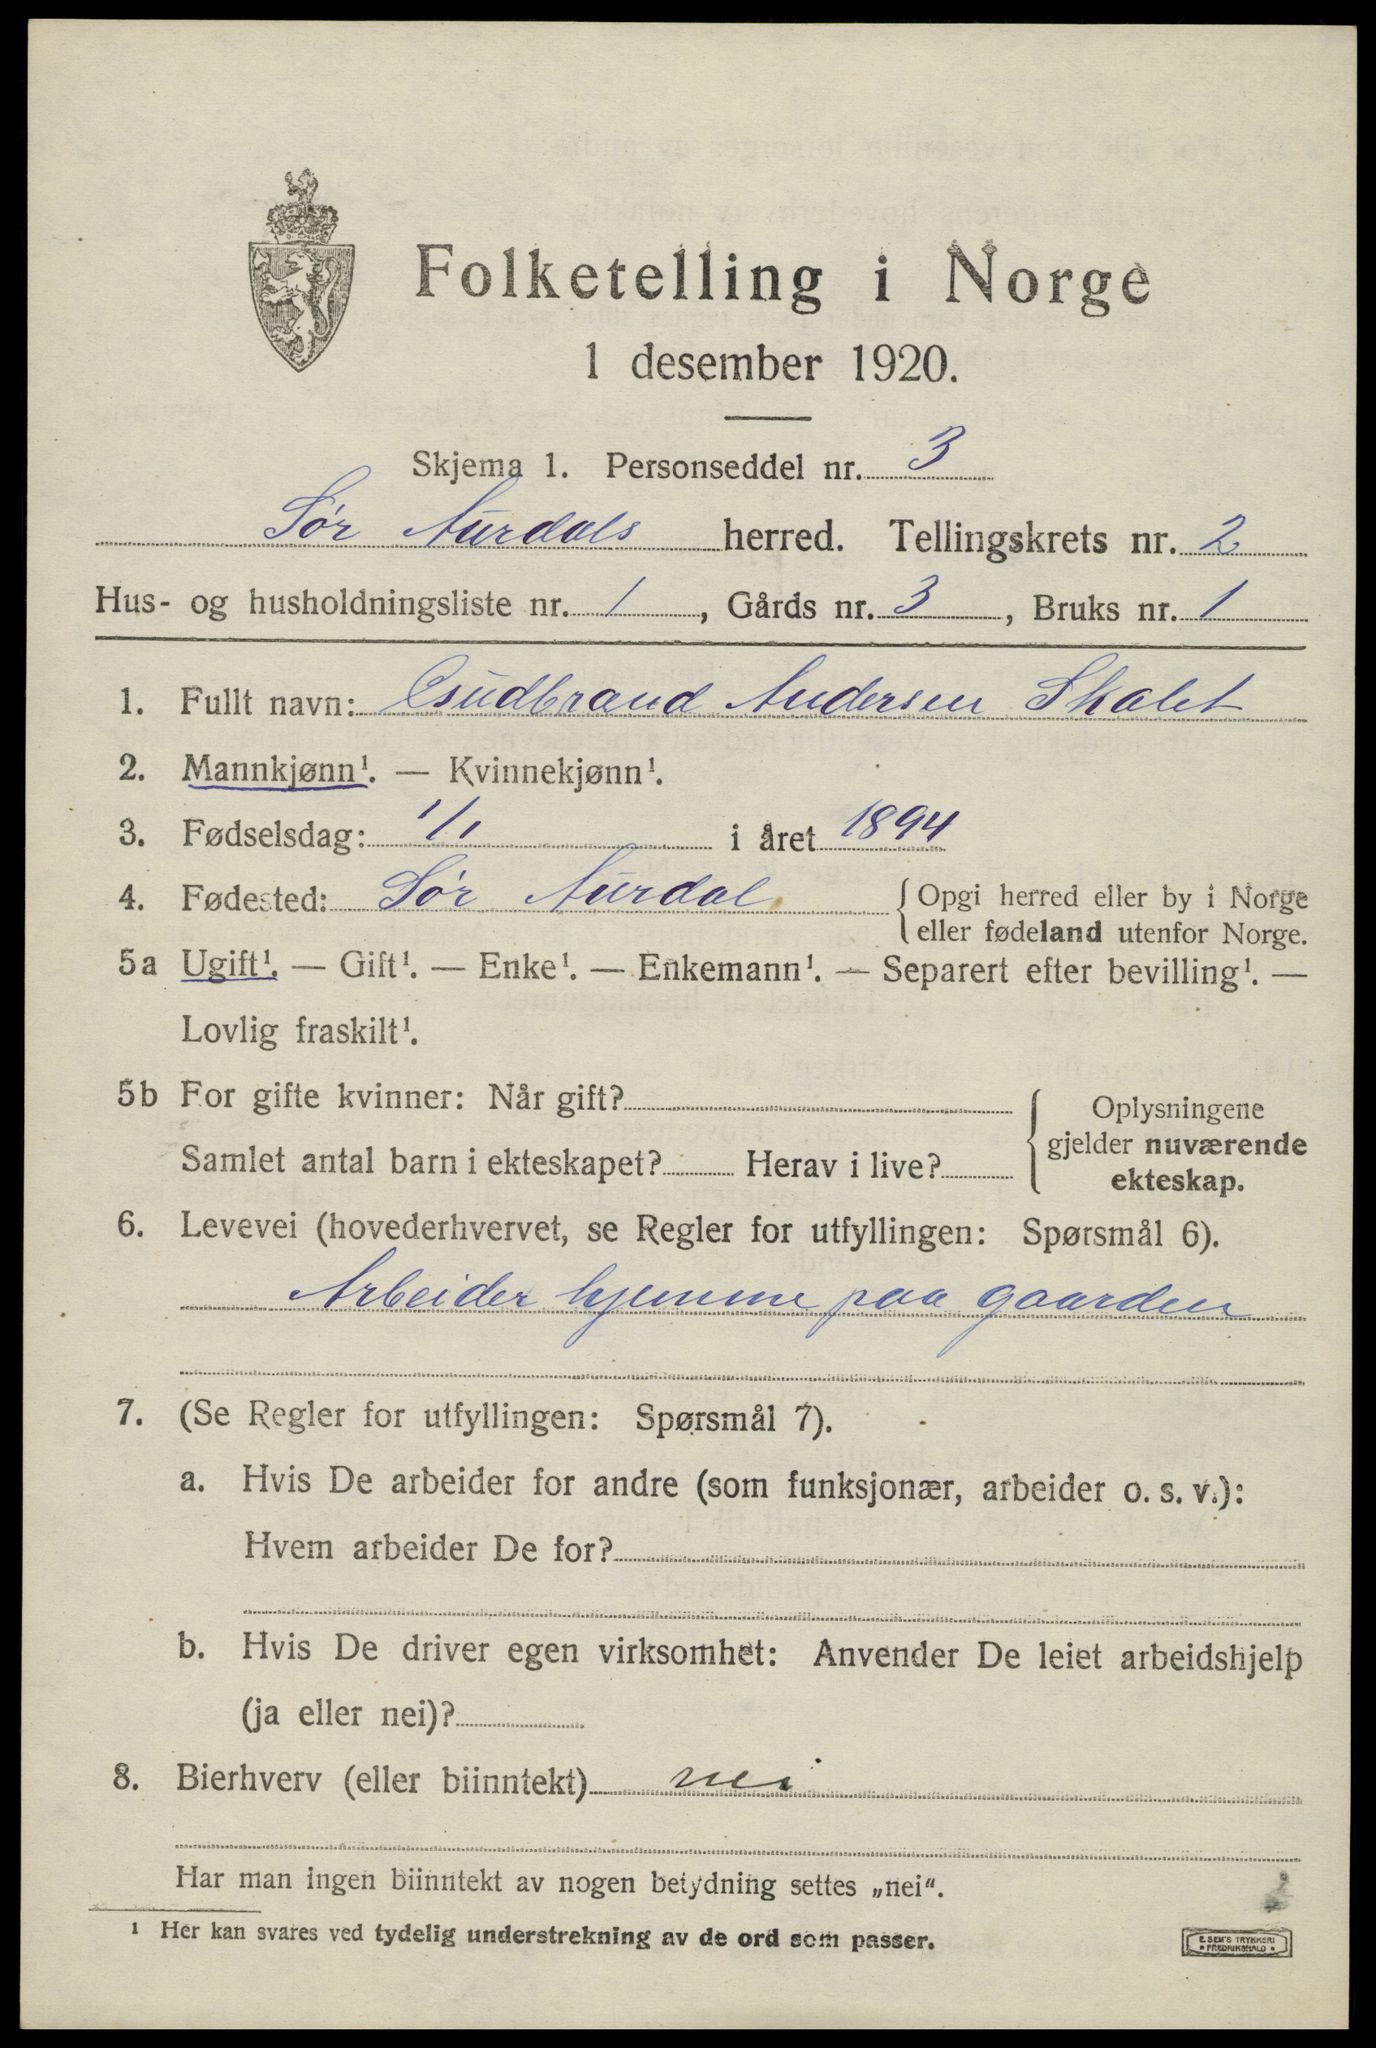 Folketelling i Norge
1 desember 1920.
Skjema 1. Personseddel nr. 3
Sør Aurdals herred. Tellingskrets nr. 2
Hus- og husholdningsliste nr. 1, Gårds nr. 3, Bruks nr. 1
1. Fullt navn: Gudbrand Andersen Skalet
2. Mannkjønn¹. — Kvinnekjønn¹.
3. Fødselsdag: 1/1 i året 1894
4. Fødested: Sør Aurdal { Opgi herred eller by i Norge
eller fødeland utenfor Norge.
5a Ugift¹. — Gift¹. — Enke¹. — Enkemann¹. — Separert efter bevilling¹. —
Lovlig fraskilt¹.
5b For gifte kvinner: Når gift?
Samlet antal barn i ekteskapet? Herav i live?
Oplysningene
gjelder nuværende
ekteskap.
6. Levevei (hovederhvervet, se Regler for utfyllingen: Spørsmål 6).
Arbeider hjemme paa gaarden
7. (Se Regler for utfyllingen: Spørsmål 7).
a. Hvis De arbeider for andre (som funksjonær, arbeider o. s. v.):
Hvem arbeider De for?
b. Hvis De driver egen virksomhet: Anvender De leiet arbeidshjelp
(ja eller nei)?
8. Bierhverv (eller biinntekt) nei
Har man ingen biinntekt av nogen betydning settes „nei“.
¹ Her kan svares ved tydelig understrekning av de ord som passer.
E. SEM'S TRYKKERI
FREDRIKSHALD